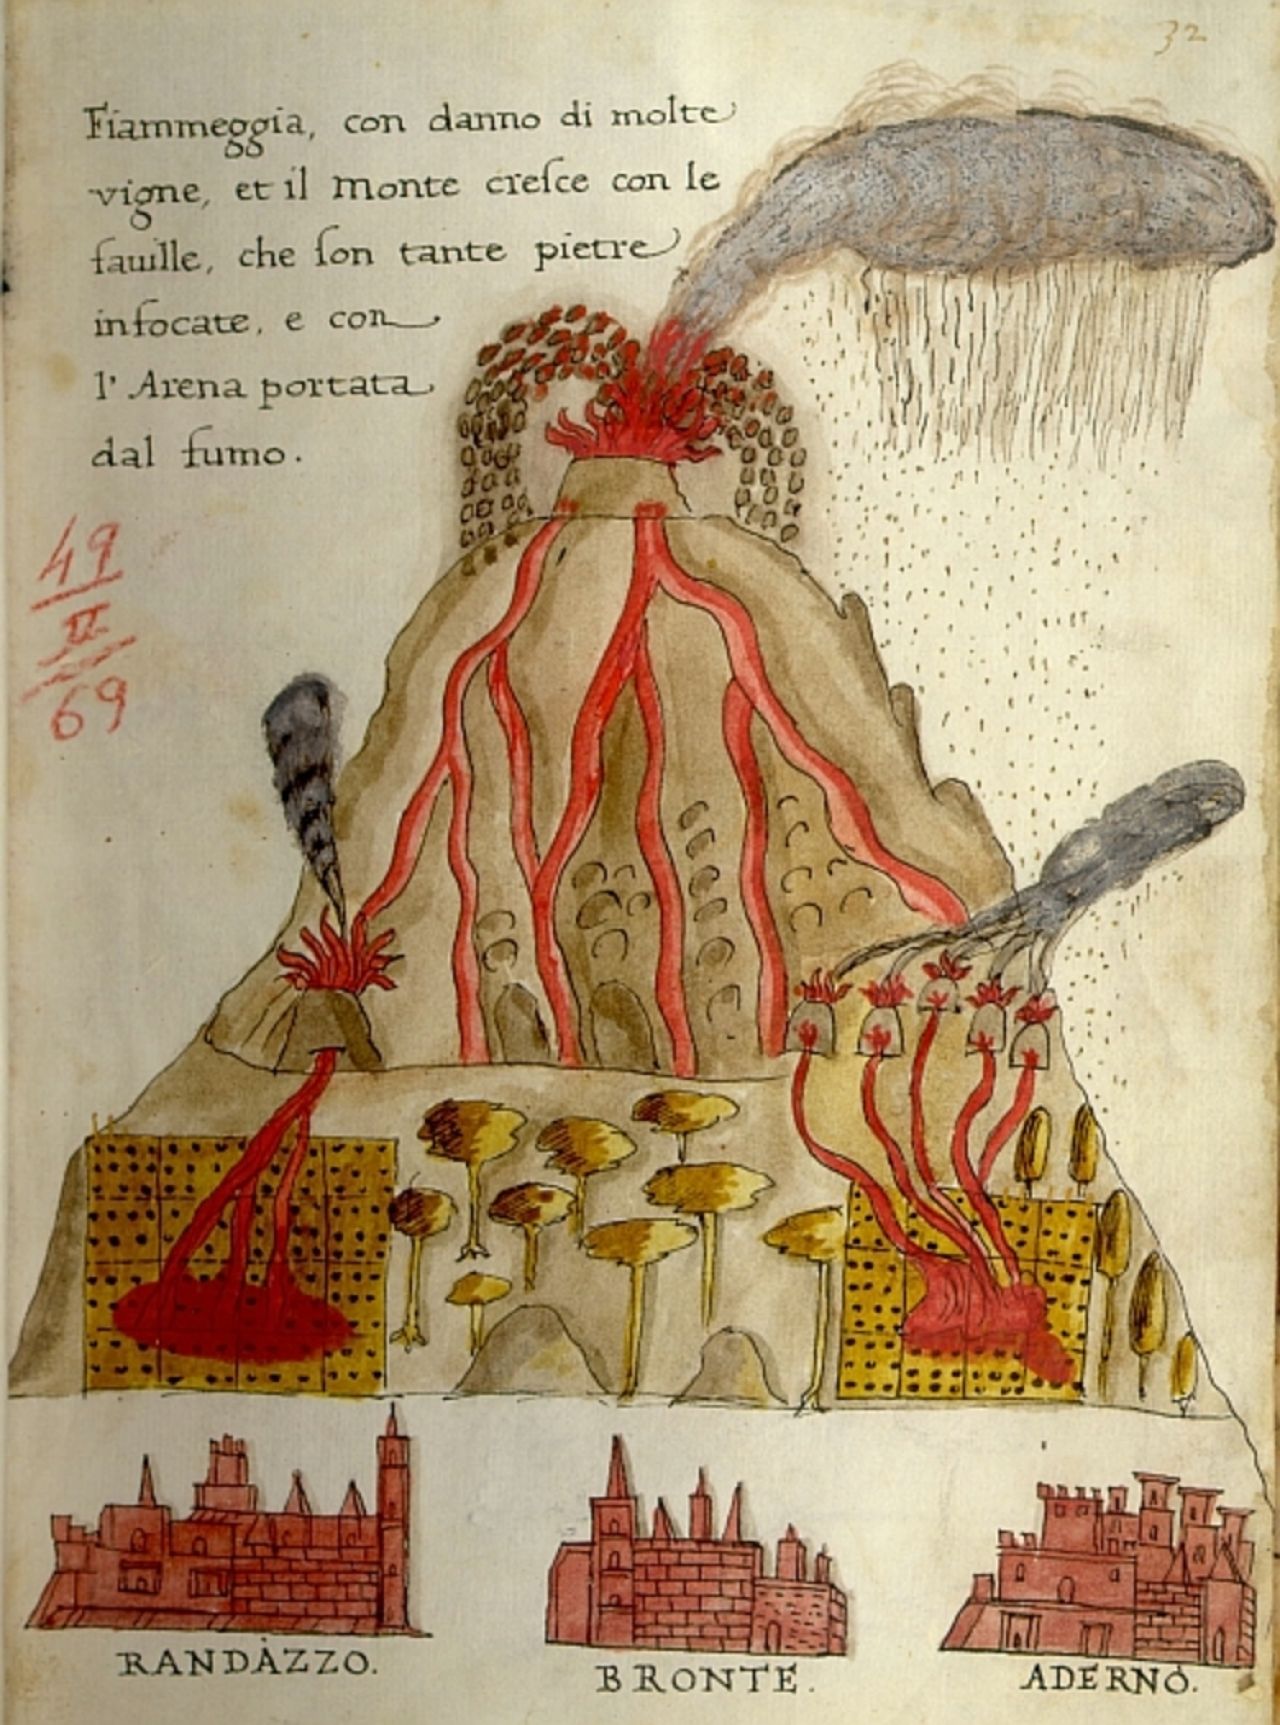 32
Fiammeggia, con danno di molte
vigne, et il monte creſce con le
fauille, che ſon tante pietre
infocate, e con
l' Arena portata
dal fumo.
49
II
69
RANDÀZZO.
BRONTE.
ADERNÒ.